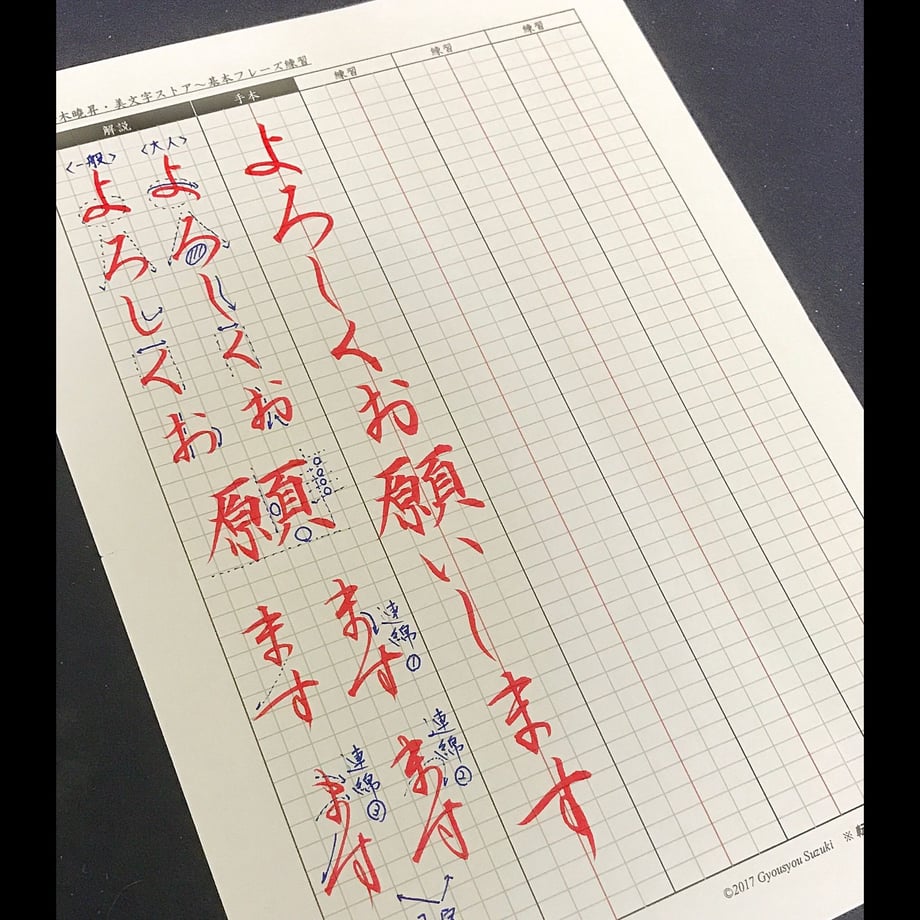 木曉昇・美文字ストア〜基本フレーズ練習
解説
手本
練習
練習
練習
<一般>
<大人>
よろしくお
よろしくお
願
ます
ます
連綿①
ます
連綿②
ます
連綿③
よろしくお願いします
©2017 Gyousyou Suzuki ※